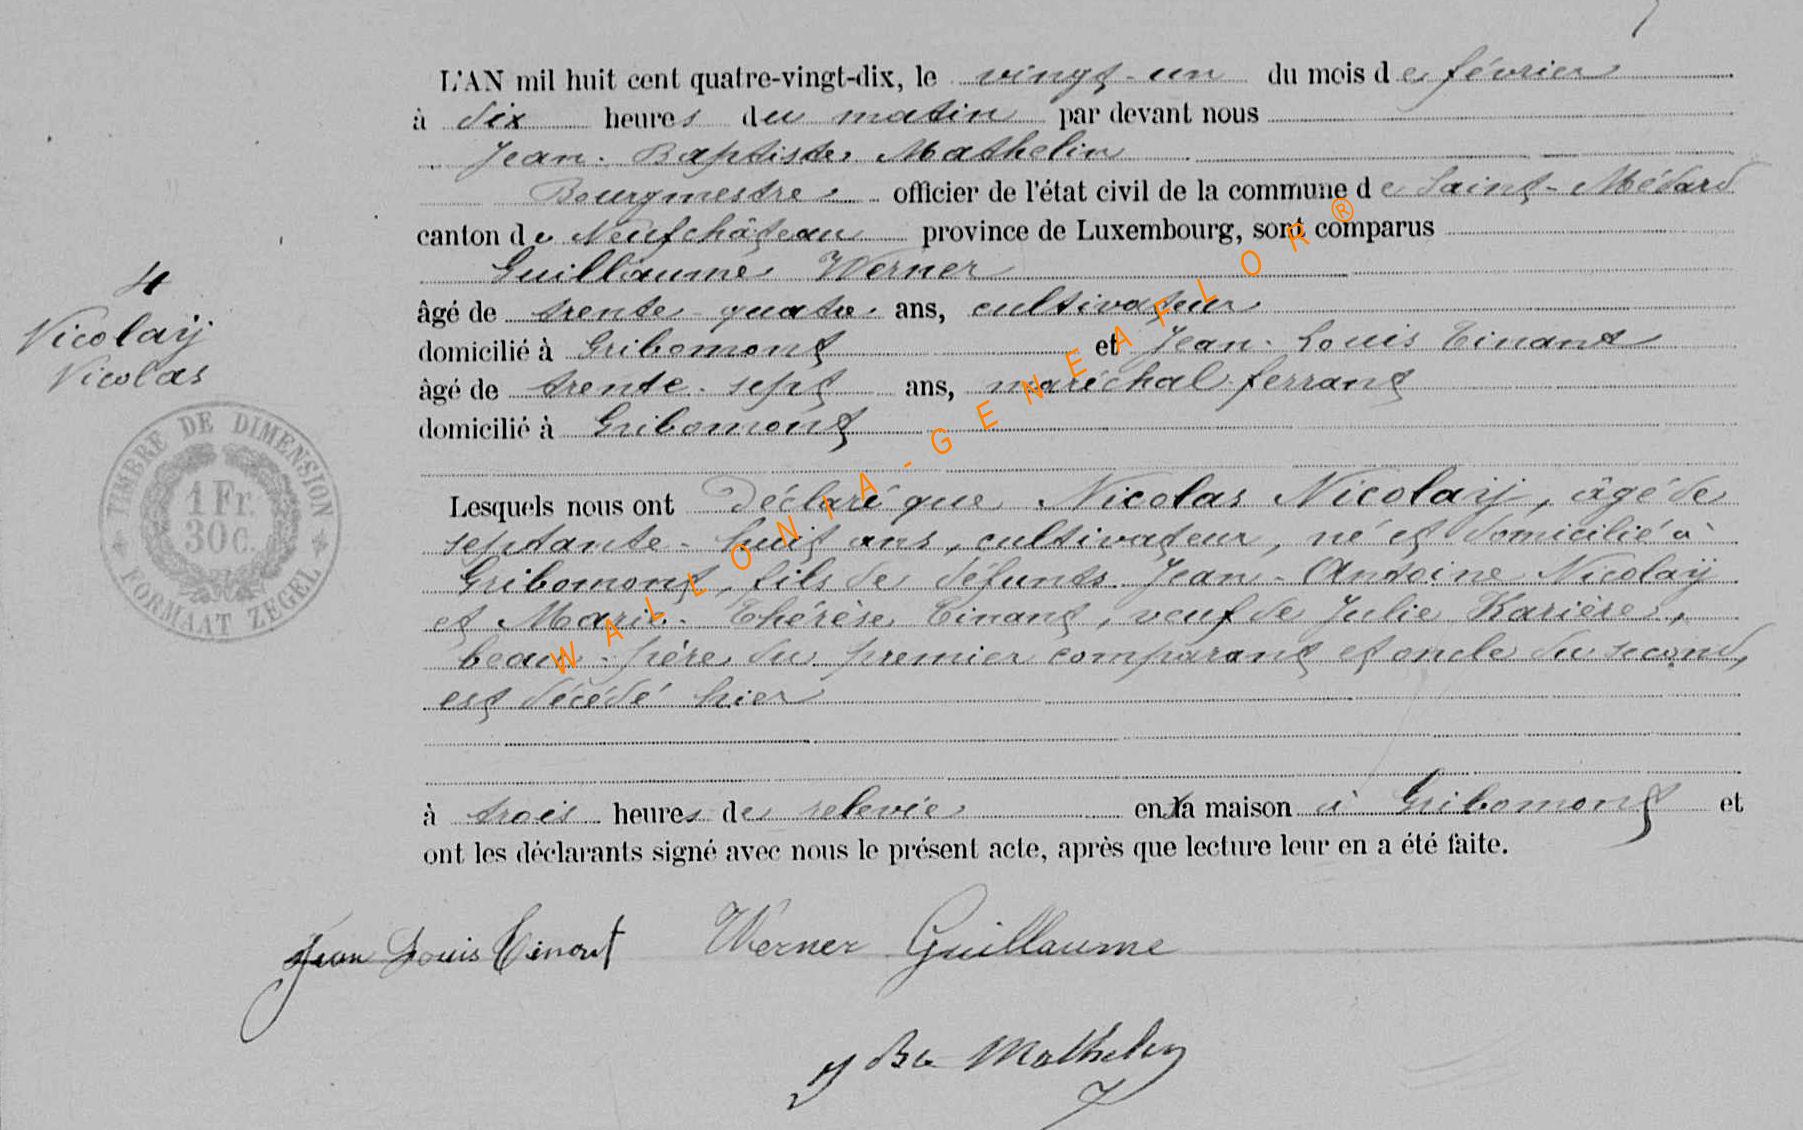 L'AN mil huit cent quatre-vingt-dix, le vingt-un du mois de février
à dix heures du matin par devant nous
Jean-Baptiste Mathelin
Bourgmestre officier de l'état civil de la commune de Saint-Médard
canton de Neufchâteau province de Luxembourg, sont comparus
Guillaume Werner
âgé de trente-quatre ans, cultivateur
domicilié à Gribomont et Jean-Louis Tinant
âgé de trente-sept ans, maréchal-ferrant
domicilié à Gribomont
4
Nicolaÿ
Nicolas
TIMBRE DE DIMENSION
1 Fr.
30 C.
FORMAAT ZEGEL
Lesquels nous ont déclaré que Nicolas Nicolaÿ, âgé de
septante-huit ans, cultivateur, né et domicilié à
Gribomont, fils de défunts Jean-Antoine Nicolaÿ
et Marie-Thérèse Tinant, veuf de Julie Karière,
beau-père du premier comparant et oncle du second,
est décédé hier
à trois heures de relevée en la maison à Gribomont et
ont les déclarants signé avec nous le présent acte, après que lecture leur en a été faite.
Jean Louis Tinant Werner Guillaume
J Bte Mathelin
WALLONIA-GENEAFLOR®